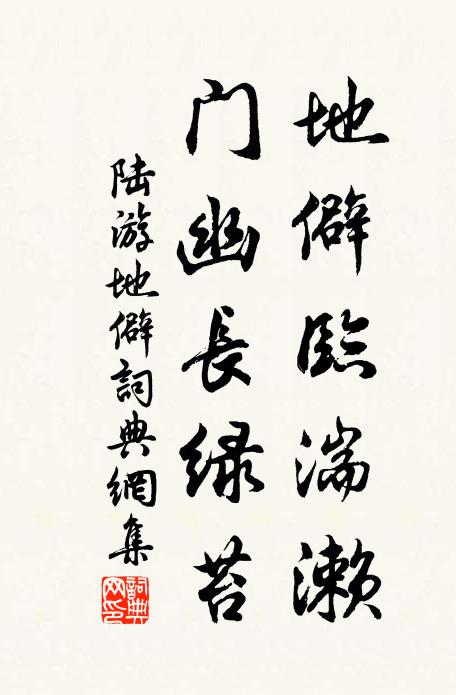 地僻臨湍瀨
门幽長緑苔
陆游地僻詞典網集
詞典网印